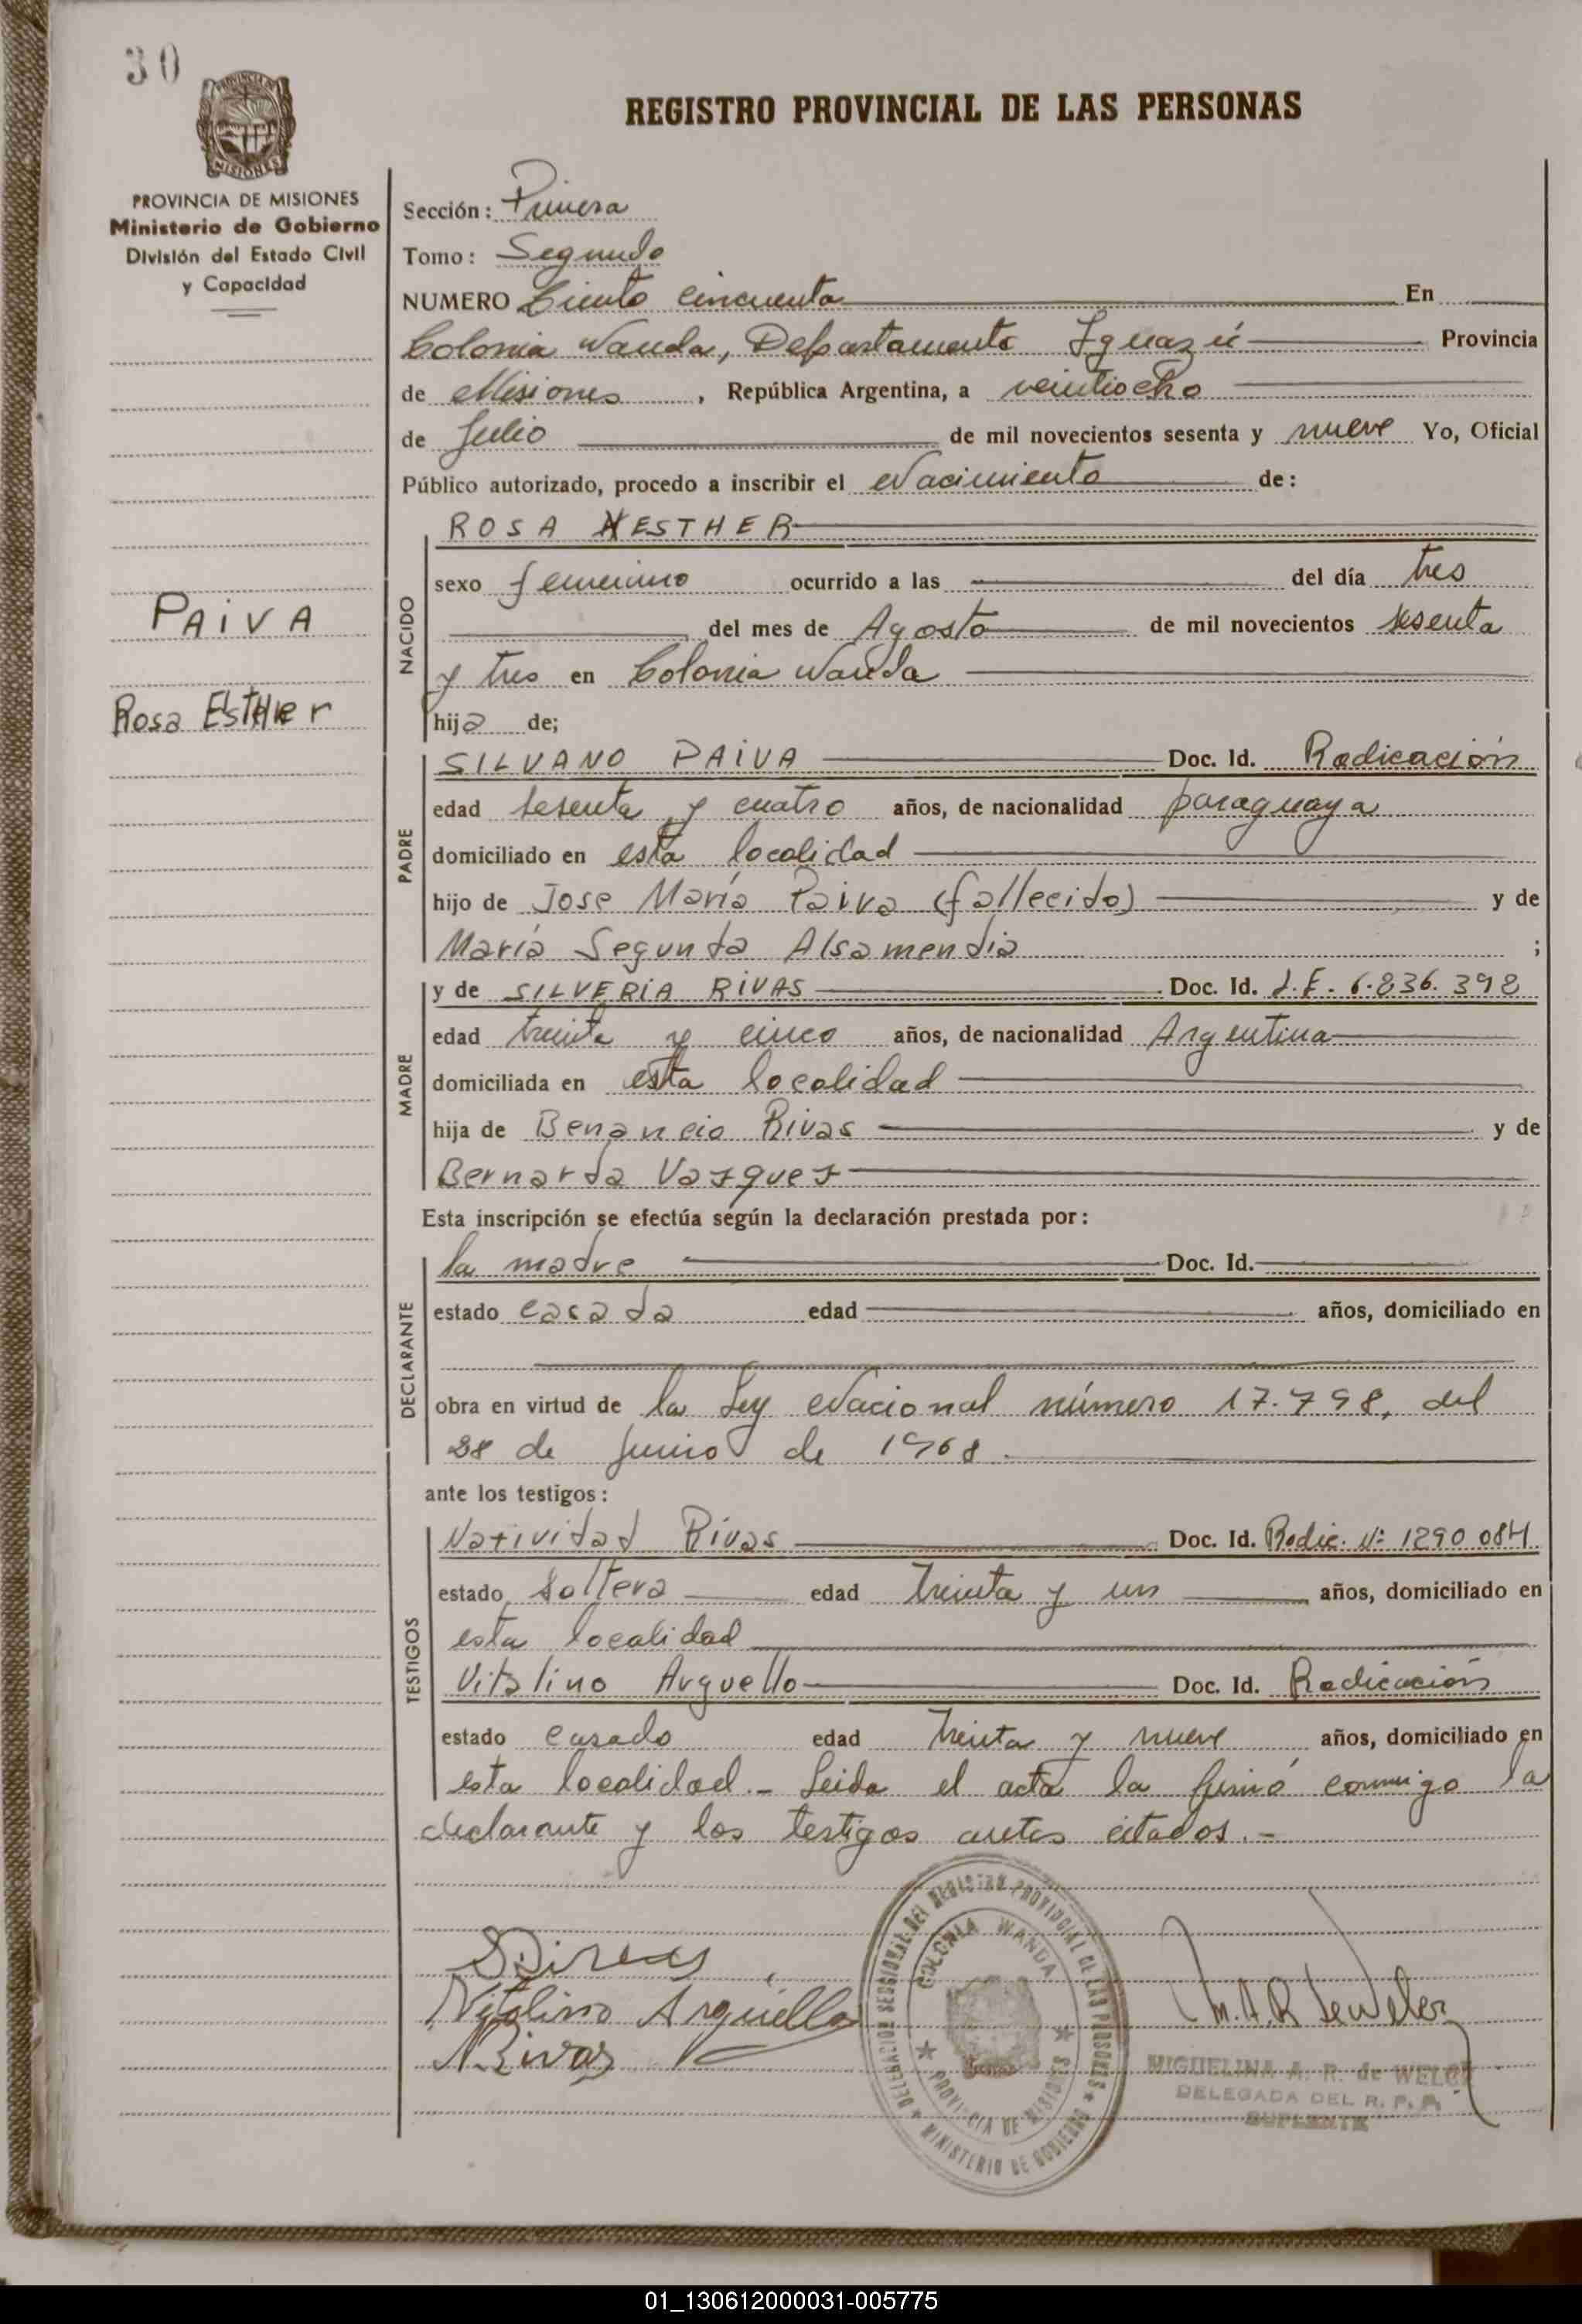 30
PROVINCIA DE MISIONES
Ministerio de Gobierno
División del Estado Civil
y Capacidad
REGISTRO PROVINCIAL DE LAS PERSONAS
Sección: Primera
Tomo: Segundo
NUMERO Ciento cincuenta En
Colonia Wanda, Departamento Iguazú Provincia
de Misiones, República Argentina, a veintiocho
de Julio de mil novecientos sesenta y nueve Yo, Oficial
Público autorizado, procedo a inscribir el Nacimiento de:
ROSA ESTHER
NACIDO
sexo femenino ocurrido a las del día tres
del mes de Agosto de mil novecientos sesenta
y tres en Colonia Wanda
hija de;
PAIVA
Rosa Esther
PADRE
SILVANO PAIVA Doc. Id. Radicación
edad sesenta y cuatro años, de nacionalidad paraguaya
domiciliado en esta localidad
hijo de Jose María Paiva (fallecido) y de
María Segunda Alsamendia ;
MADRE
y de SILVERIA RIVAS Doc. Id. L.E. 6.836.398
edad treinta y cinco años, de nacionalidad Argentina
domiciliada en esta localidad
hija de Benancio Rivas y de
Bernarda Vazquez
Esta inscripción se efectúa según la declaración prestada por:
DECLARANTE
la madre Doc. Id.
estado casada edad años, domiciliado en
obra en virtud de la Ley Nacional número 17.798, del
28 de Junio de 1968.
ante los testigos:
TESTIGOS
Natividad Rivas Doc. Id. Radic. Nº 1290 084
estado soltera edad treinta y un años, domiciliado en
esta localidad
Vitalino Arguello Doc. Id. Radicación
estado casado edad treinta y nueve años, domiciliado en
esta localidad.- Leida el acta la firmó conmigo la
declarante y los testigos antes citados.-
Vitalino Argüello
N. Rivas
DELEGACION SECCIONAL DEL REGISTRO PROVINCIAL DE LAS PERSONAS
MINISTERIO DE GOBIERNO
COLONIA WANDA
PROVINCIA DE MISIONES
M.A.R de Welcz
MIGUELINA A. R. de WELCZ
DELEGADA DEL R. P. P.
SUPLENTE
01_130612000031-005775